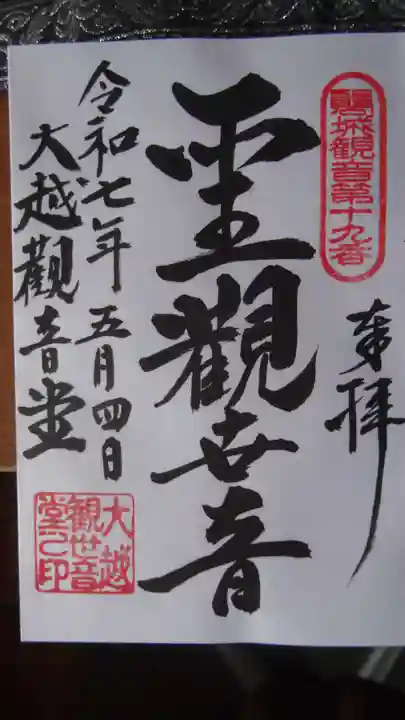 城観音第十九番
奉拝
聖觀世音
令和七年五月四日
大越觀音堂
大越
観世音
堂之印